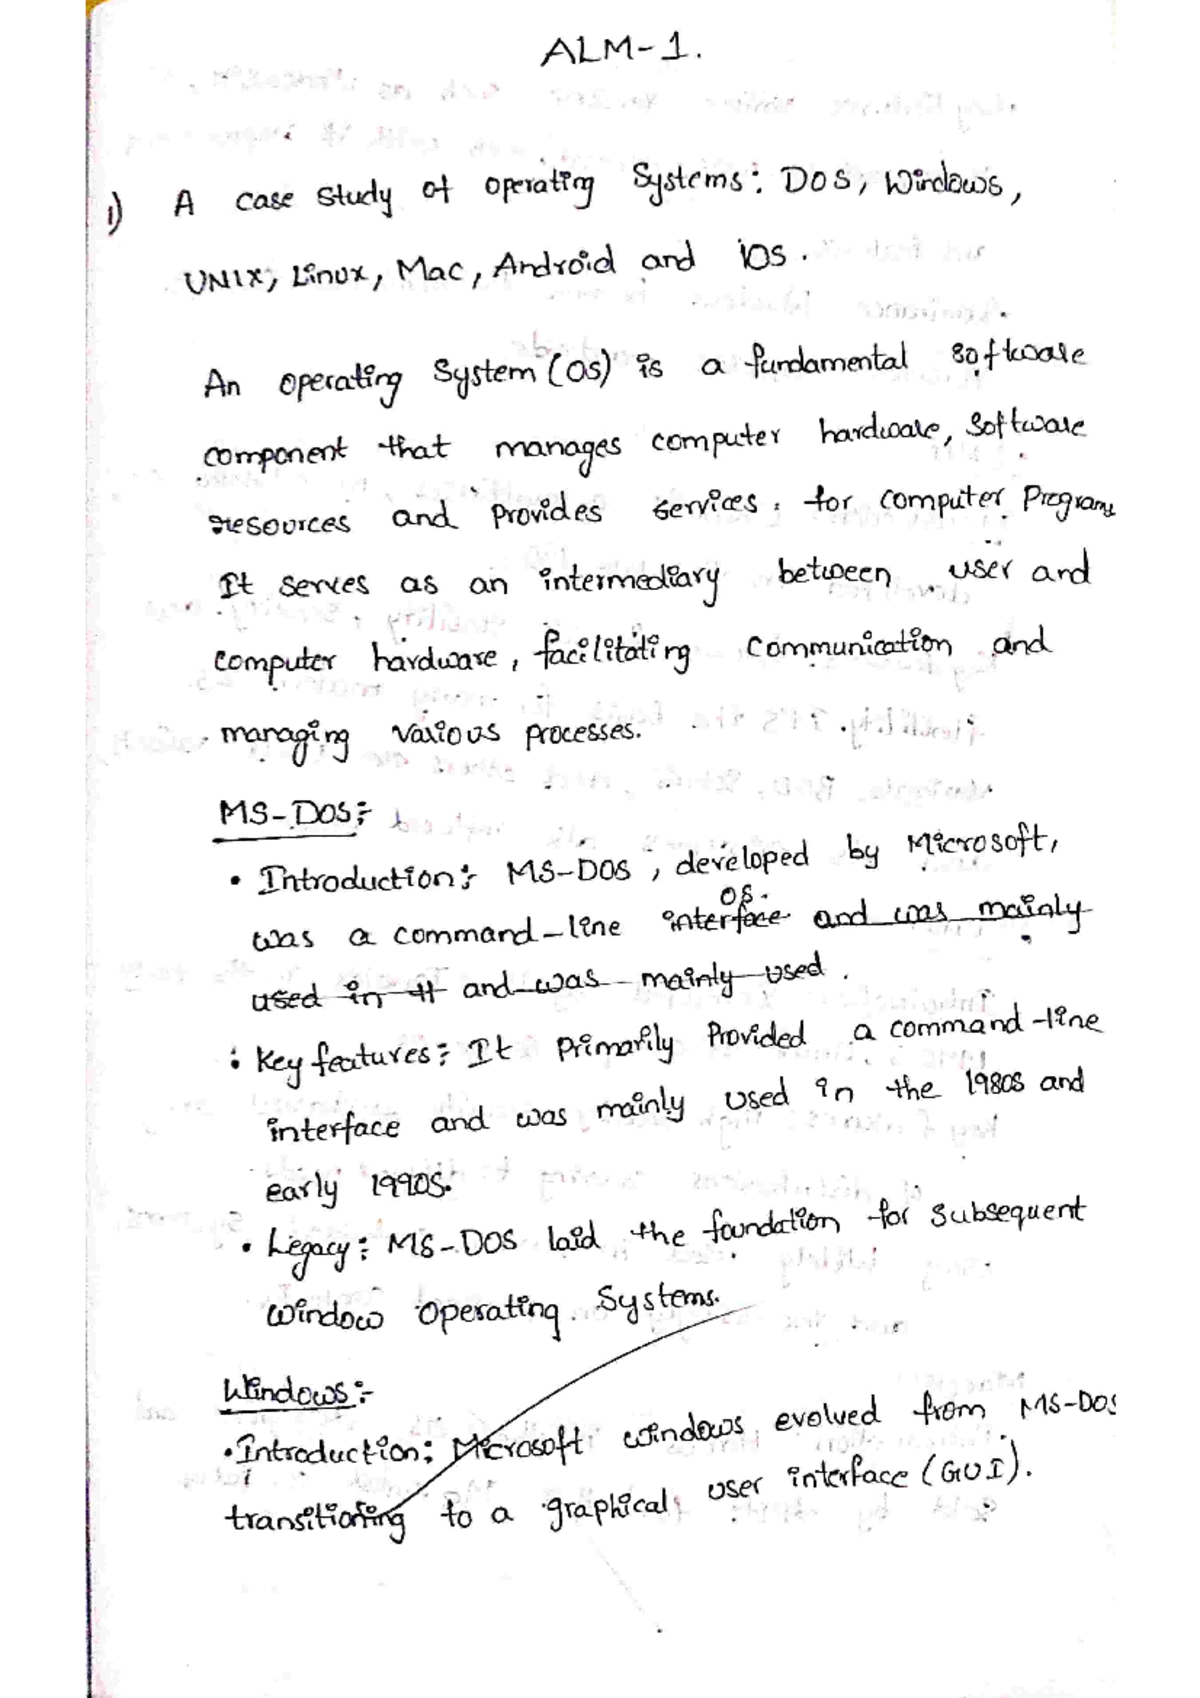 ALM-1.
1) A case study of operating Systems: DOS, Windows,
UNIX, Linux, Mac, Android and iOS.
An operating System (OS) is a fundamental software
component that manages computer hardware, Software
resources and provides services for computer Programs
It serves as an intermediary between user and
computer hardware, facilitating communication and
managing various processes.
MS-DOS:-
• Introduction:- MS-DOS, developed by Microsoft,
OS.
was a command-line interface and was mainly
used in it and was mainly used.
• Key features:- It primarily Provided a command-line
interface and was mainly used in the 1980s and
early 1990s.
• Legacy:- MS-DOS laid the foundation for subsequent
window operating systems.
Windows:-
• Introduction: Microsoft windows evolved from MS-DOS
transitioning to a graphical user interface (GUI).